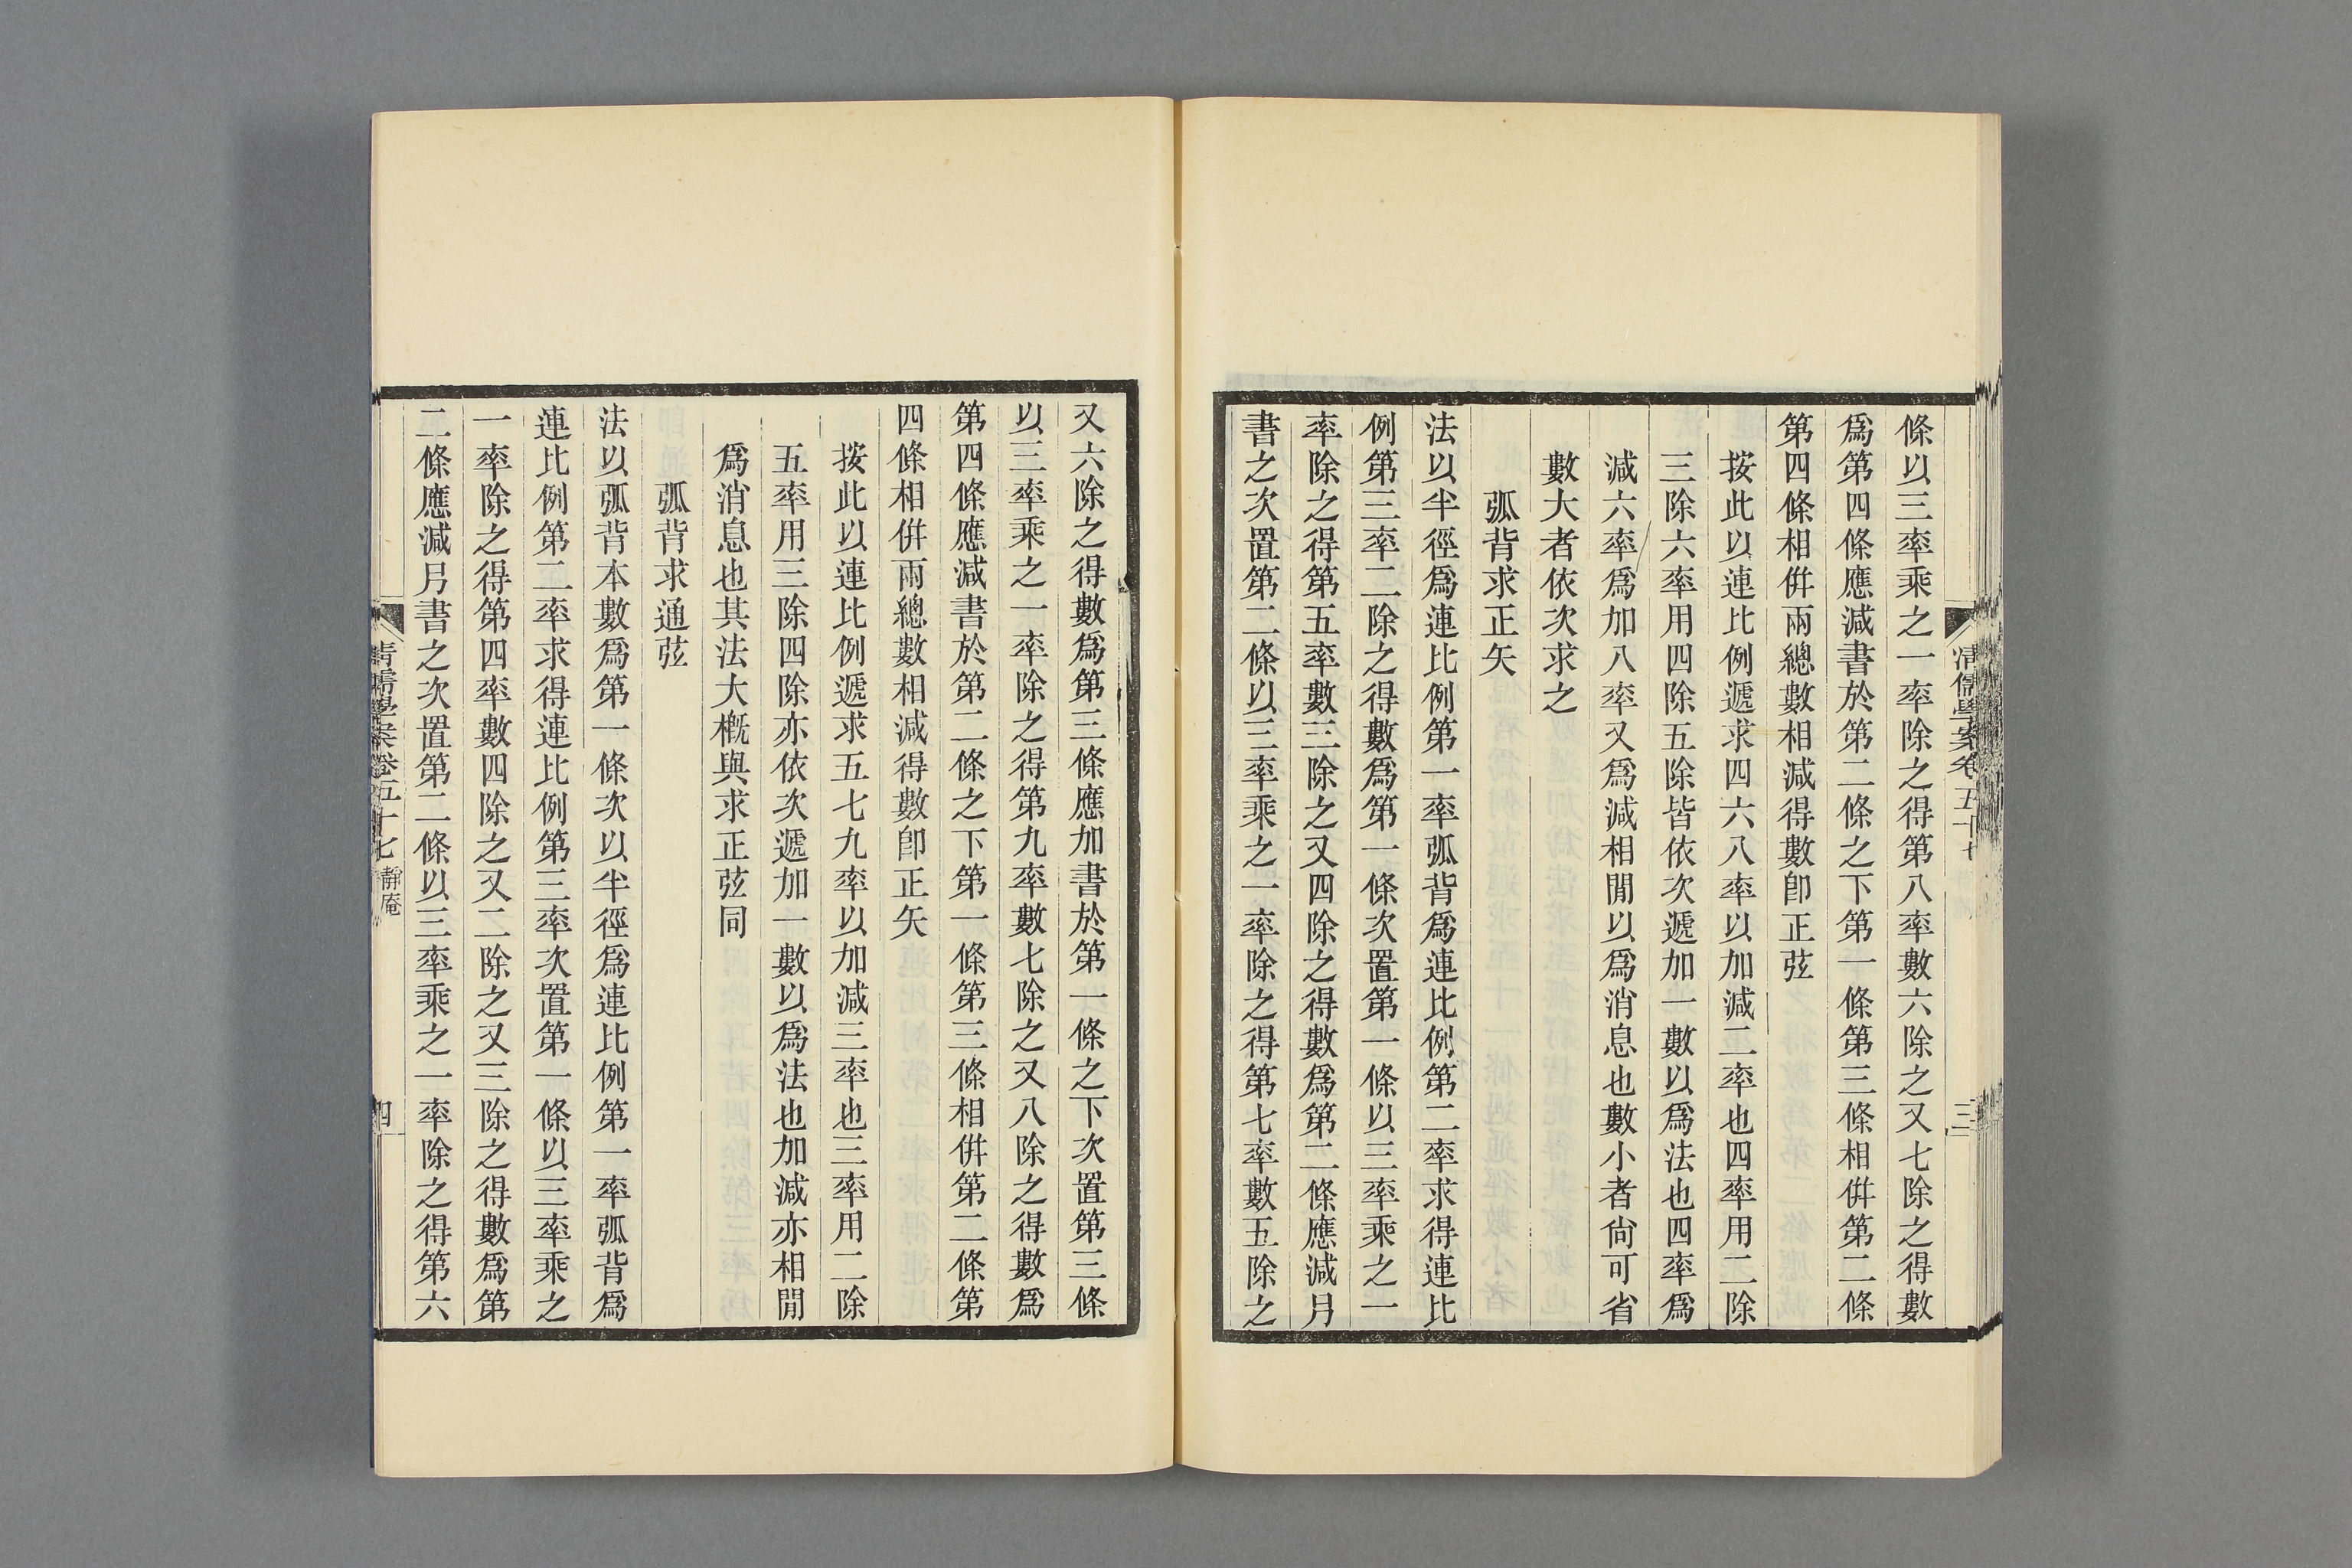 條以三率乘之一率除之得第八率數六除之又七除之得數
爲第四條應減書於第二條之下第一條第三條相倂第二條
第四條相倂兩總數相減得數卽正弦
按此以連比例遞求四六八率以加減二率也四率用二除
三除六率用四除五除皆依次遞加一數以爲法也四率爲
減六率爲加八率又爲減相閒以爲消息也數小者尙可省
數大者依次求之
弧背求正矢
法以半徑爲連比例第一率弧背爲連比例第二率求得連比
例第三率二除之得數爲第一條次置第一條以三率乘之一
率除之得第五率數三除之又四除之得數爲第二條應減另
書之次置第二條以三率乘之一率除之得第七率數五除之
清儒學案卷五十七
三
又六除之得數爲第三條應加書於第一條之下次置第三條
以三率乘之一率除之得第九率數七除之又八除之得數爲
第四條應減書於第二條之下第一條第三條相倂第二條第
四條相倂兩總數相減得數卽正矢
按此以連比例遞求五七九率以加減三率也三率用二除
五率用三除四除亦依次遞加一數以爲法也加減亦相閒
爲消息也其法大槪與求正弦同
弧背求通弦
法以弧背本數爲第一條次以半徑爲連比例第一率弧背爲
連比例第二率求得連比例第三率次置第一條以三率乘之
一率除之得第四率數四除之又二除之又三除之得數爲第
二條應減另書之次置第二條以三率乘之一率除之得第六
清儒學案卷五十七 靜庵
四